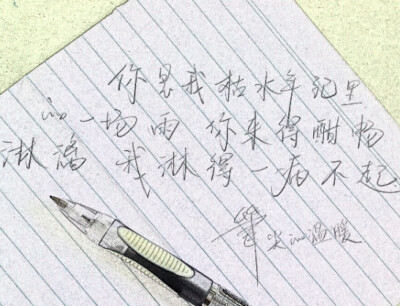 你是我枯水年纪里
的一场雨 你来得酣畅
淋漓 我淋得一病不起
笔尖的温暖